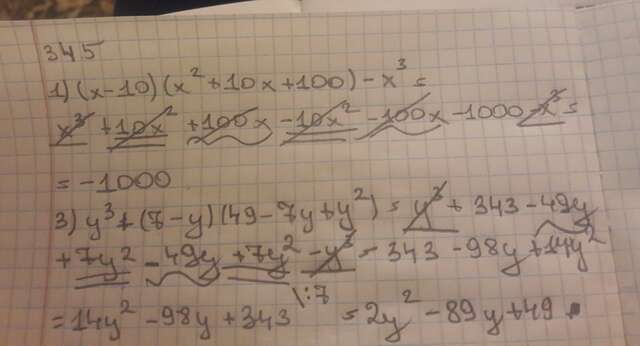 345
1) (x-10)(x²+10x+100)-x³=
x³+10x²+100x-10x²-100x-1000-x³=
=-1000
3) y³+(7-y)(49-7y+y²)=y³+343-49y
+7y²-49y+7y²-y³=343-98y+14y²
=14y²-98y+343 \:7 =2y²-89y+49